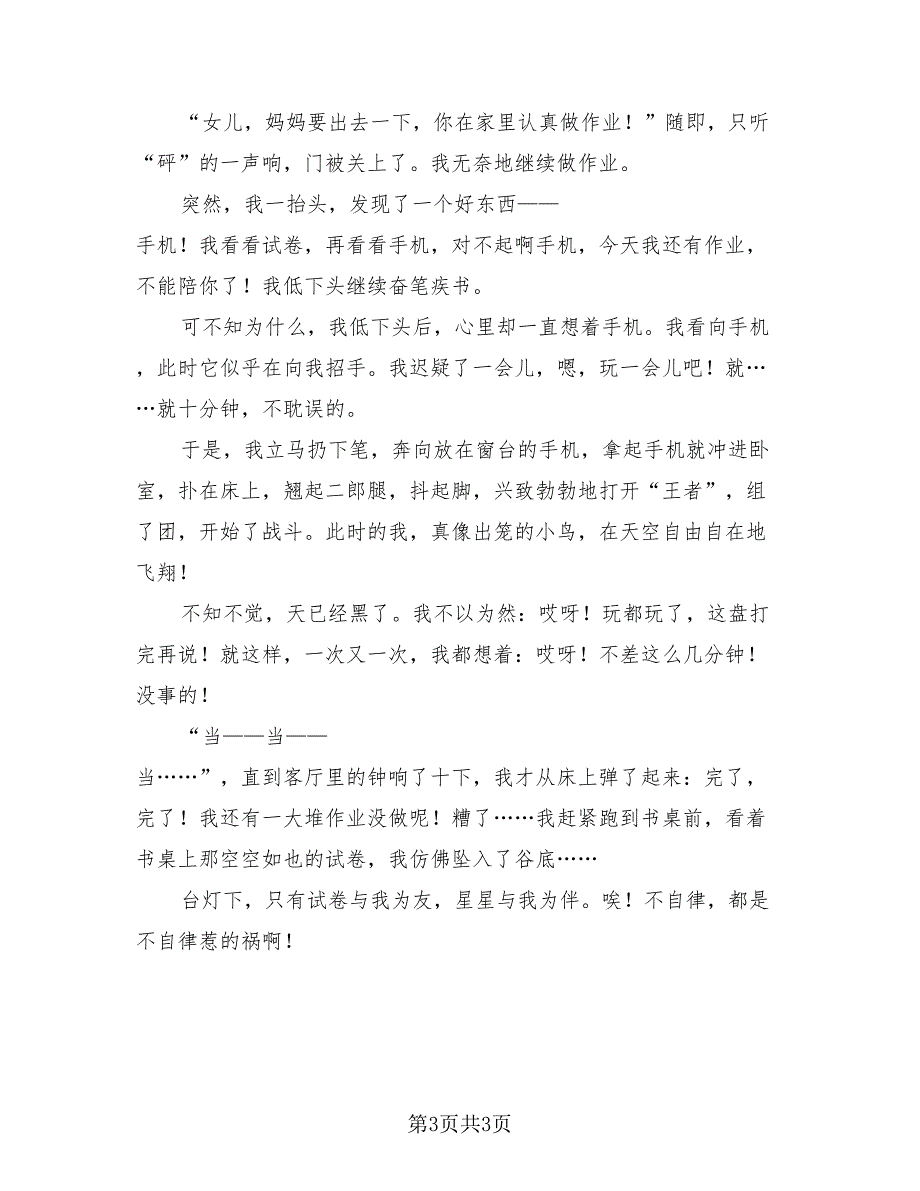 “女儿，妈妈要出去一下，你在家里认真做作业！”随即，只听
“砰”的一声响，门被关上了。我无奈地继续做作业。
突然，我一抬头，发现了一个好东西——
手机！我看看试卷，再看看手机，对不起啊手机，今天我还有作业，
不能陪你了！我低下头继续奋笔疾书。
可不知为什么，我低下头后，心里却一直想着手机。我看向手机
，此时它似乎在向我招手。我迟疑了一会儿，嗯，玩一会儿吧！就…
…就十分钟，不耽误的。
于是，我立马扔下笔，奔向放在窗台的手机，拿起手机就冲进卧
室，扑在床上，翘起二郎腿，抖起脚，兴致勃勃地打开“王者”，组
了团，开始了战斗。此时的我，真像出笼的小鸟，在天空自由自在地
飞翔！
不知不觉，天已经黑了。我不以为然：哎呀！玩都玩了，这盘打
完再说！就这样，一次又一次，我都想着：哎呀！不差这么几分钟！
没事的！
“当——当——
当……”，直到客厅里的钟响了十下，我才从床上弹了起来：完了，
完了！我还有一大堆作业没做呢！糟了……我赶紧跑到书桌前，看着
书桌上那空空如也的试卷，我仿佛坠入了谷底……
台灯下，只有试卷与我为友，星星与我为伴。唉！不自律，都是
不自律惹的祸啊！
第3页共3页